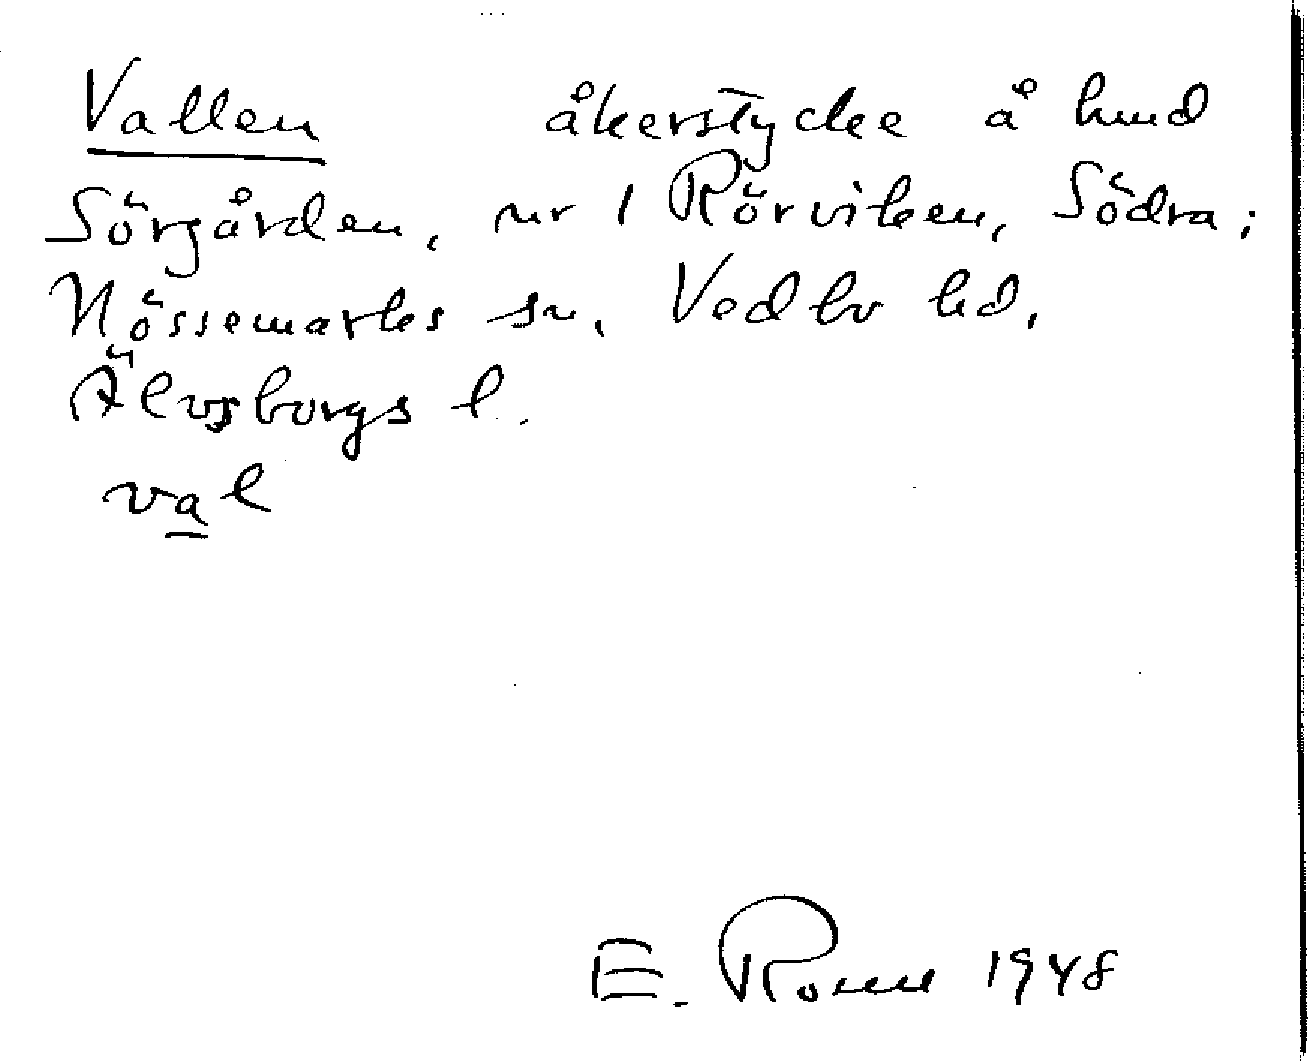 Vallen åkerstycke å hmd
Sörgården, nr 1 Rörviken, Södra i
Nössemarks sn, Vedbo hd,
Älvsborgs l.
val
E. Ronn 1948